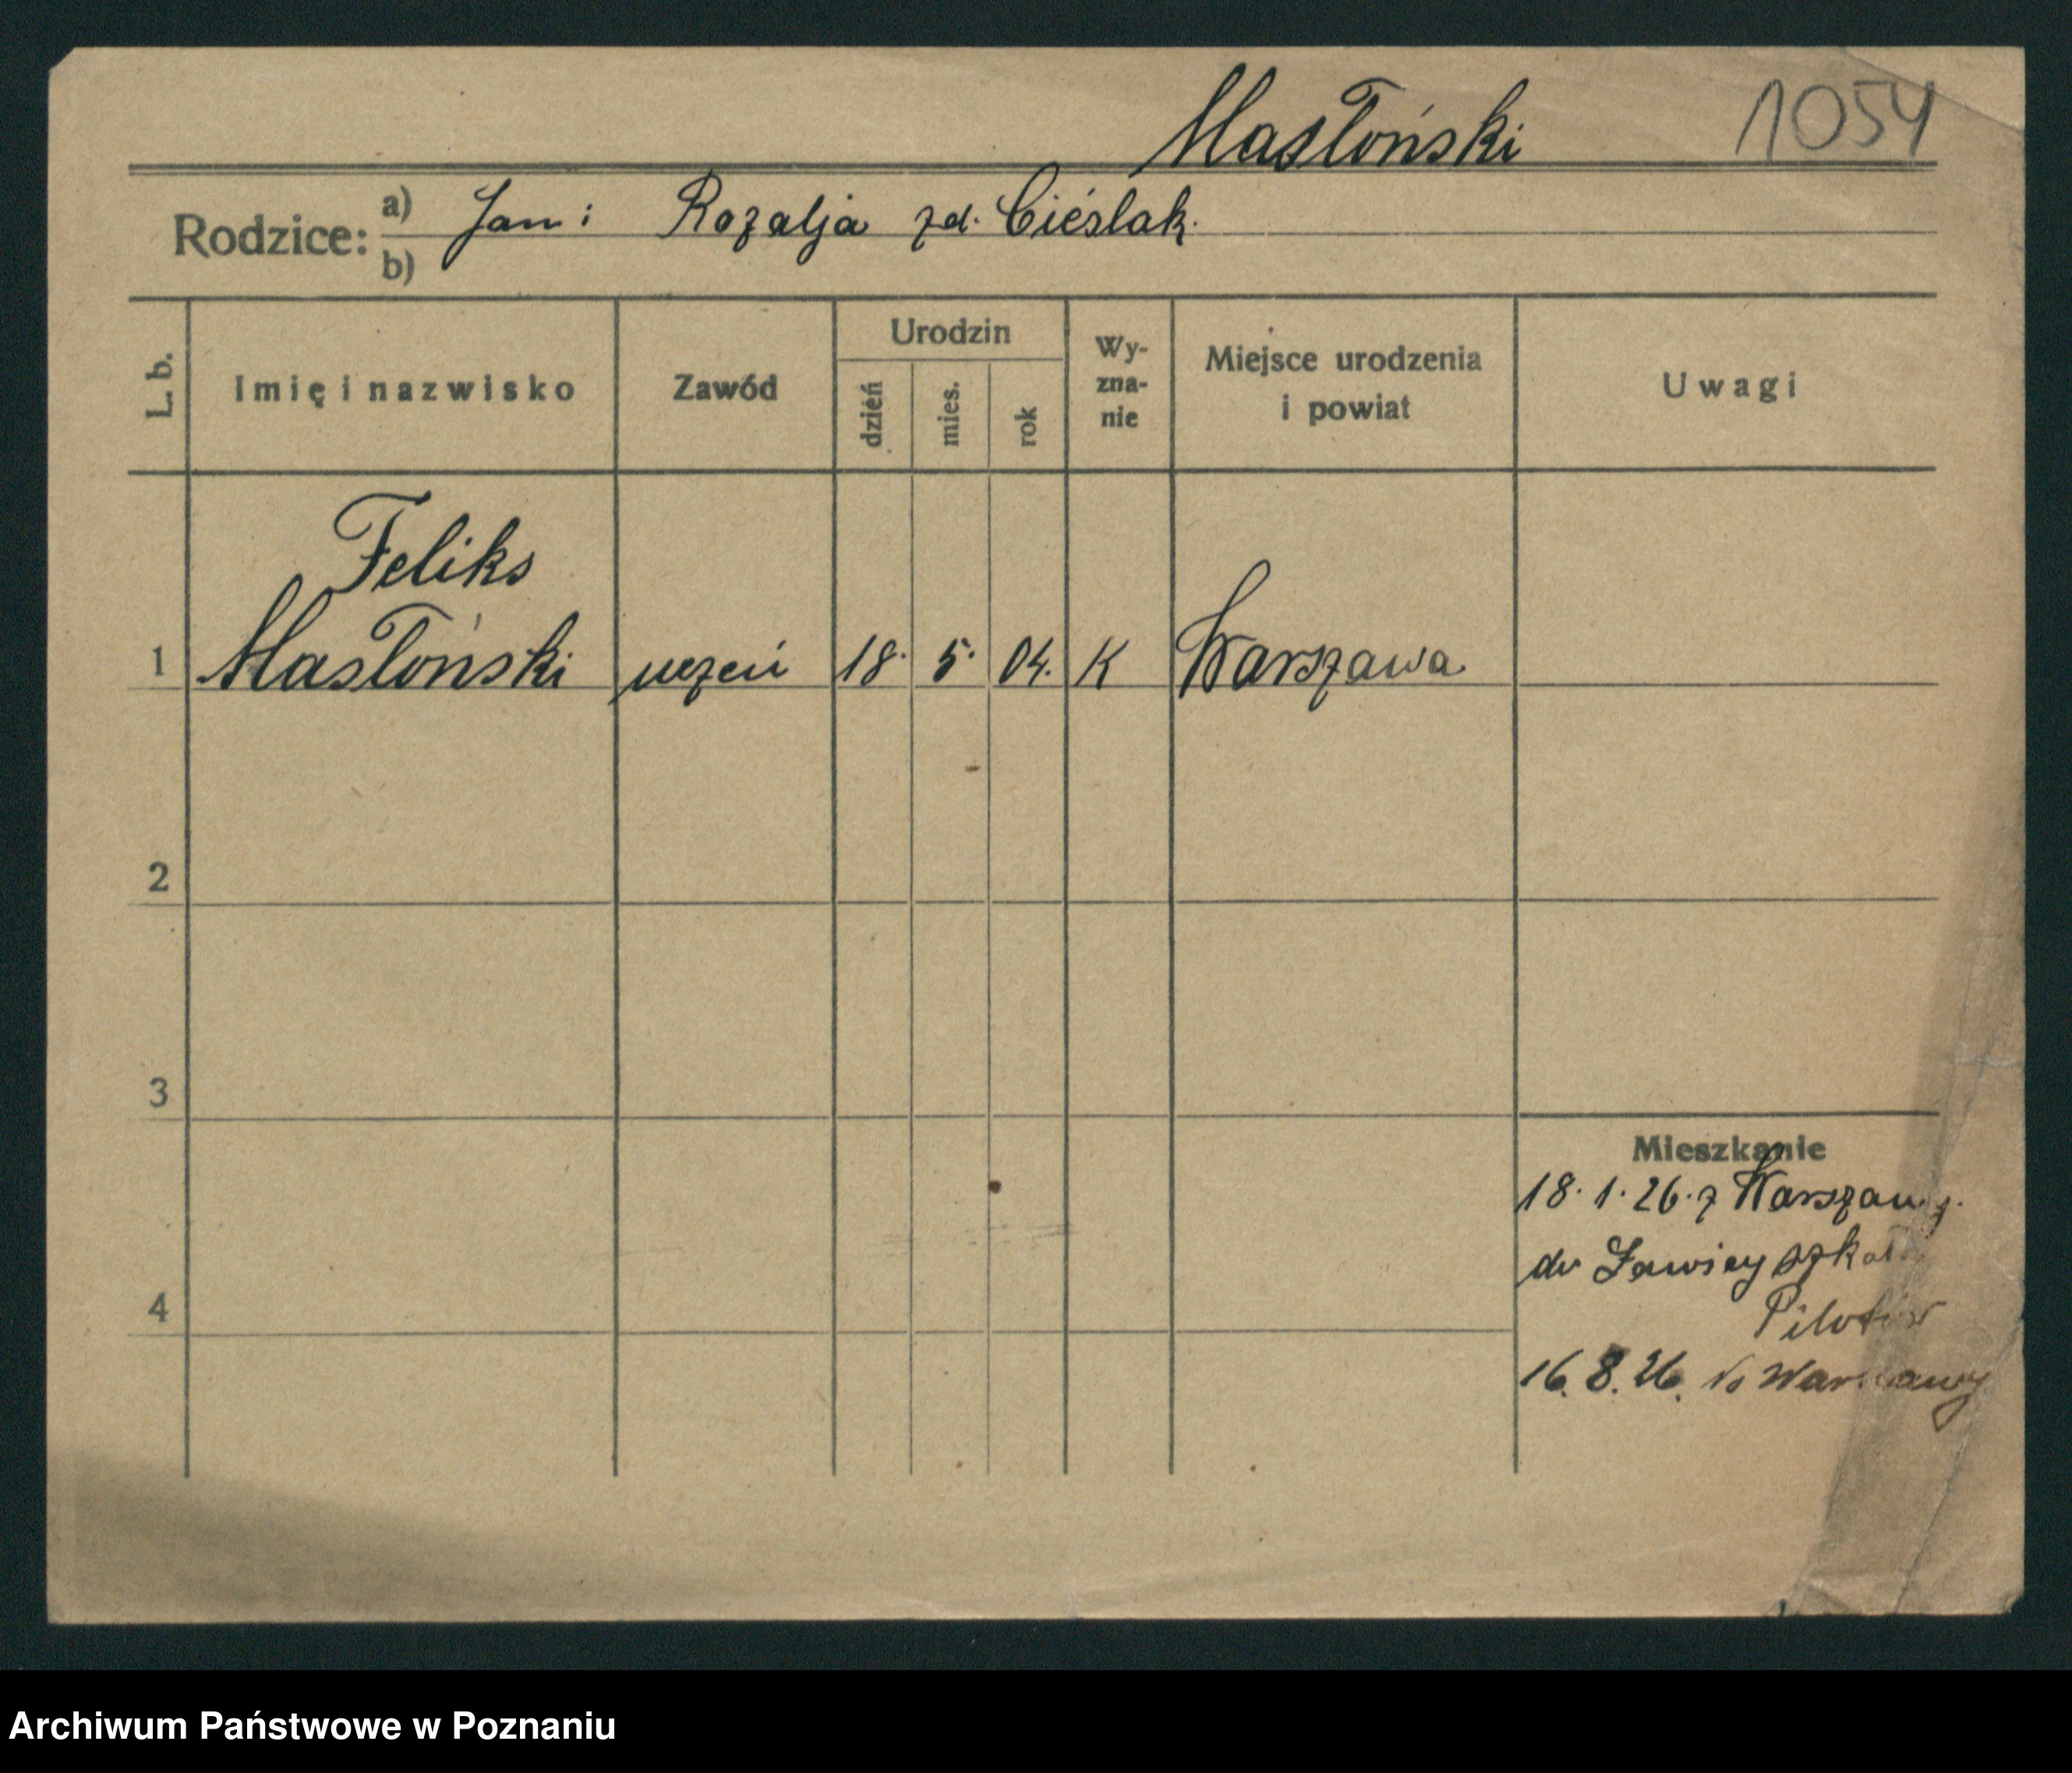 Masłoński 1054
Rodzice: a) Jan i Rozalja zd. Cieślak.
b)
L. b. Imię i nazwisko Zawód Urodzin dzień mies. rok Wyzna-nie Miejsce urodzenia i powiat Uwagi
Feliks
1 Masłoński uczeń 18. 5. 04. K Warszawa
2
3
Mieszkanie
18. 1. 26. z Warszawy.
do Ławicy szkoła
4 Pilotów
16. 8. 26. do Warszawy
Archiwum Państwowe w Poznaniu